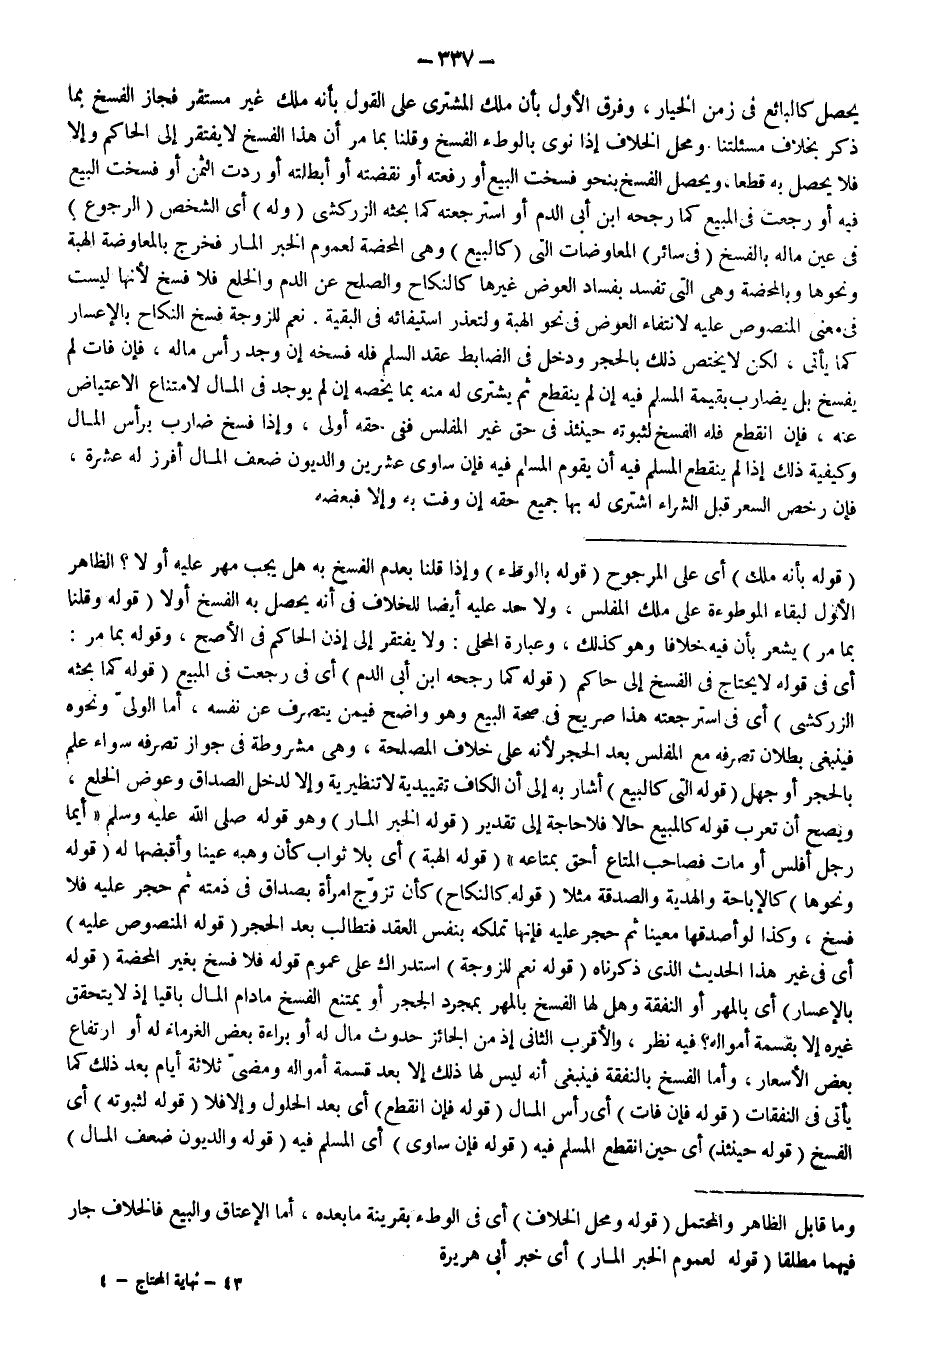 - ٣٣٧ -
يحصل كالبائع فى زمن الخيار ، وفرق الأول بأن ملك المشترى على القول بأنه ملك غير مستقر فجاز الفسخ بما
ذكر بخلاف مسئلتنا . ومحل الخلاف إذا نوى بالوطء الفسخ وقلنا بما مر أن هذا الفسخ لايفتقر إلى الحاكم وإلا
فلا يحصل به قطعا . ويحصل الفسخ بنحو فسخت البيع أو رفعته أو نقضته أو أبطلته أو ردت الثمن أو فسخت البيع
فيه أو رجعت فى المبيع كما رجحه ابن أبى الدم أو استرجعته كما بحثه الزركشى ( وله ) أى الشخص ( الرجوع )
فى عين ماله بالفسخ ( فى سائر ) المعاوضات التى ( كالبيع ) وهى المحضة لعموم الخبر المـار فخرج بالمعاوضة الهبة
ونحوها وبالمحضة وهى التى تفسد بفساد العوض غيرها كالنكاح والصلح عن الدم والخلع فلا فسخ لأنها ليست
فى معنى المنصوص عليه لانتفاء العوض فى نحو الهبة ولتعذر استيفائه فى البقية . نعم للزوجة فسخ النكاح بالإعسار
كما يأتى ، لكن لايختص ذلك بالحجر ودخل فى الضابط عقد السلم فله فسخه إن وجد رأس ماله ، فإن فات لم
يفسخ بل يضارب بقيمة المسلم فيه إن لم ينقطع ثم يشترى له منه بما يخصه إن لم يوجد فى المـال لامتناع الاعتياض
عنه ، فإن انقطع فله الفسخ لثبوته حينئذ فى حق غير المفلس ففى حقه أولى ، وإذا فسخ ضارب برأس المـال
وكيفية ذلك إذا لم ينقطع المسلم فيه أن يقوم المسلم فيه فإن ساوى عشرين والديون ضعف المـال أفرز له عشرة ،
فإن رخص السعر قبل الشراء اشترى له بها جميع حقه إن وفت به وإلا فبعضه
( قوله بأنه ملك ) أى على المرجوح ( قوله بالوطء ) وإذا قلنا بعدم الفسخ به هل يجب مهر عليه أو لا ؟ الظاهر
الأول لبقاء الموطوءة على ملك المفلس ، ولا حد عليه أيضا للخلاف فى أنه يحصل به الفسخ أولا ( قوله وقلنا
بما مر ) يشعر بأن فيه خلافا وهو كذلك ، وعبارة المحلى : ولا يفتقر إلى إذن الحاكم فى الأصح ، وقوله بما مر :
أى فى قوله لايحتاج فى الفسخ إلى حاكم ( قوله كما رجحه ابن أبى الدم ) أى فى رجعت فى المبيع ( قوله كما بحثه
الزركشى ) أى فى استرجعته هذا صريح فى صحة البيع وهو واضح فيمن يتصرف عن نفسه ، أما الولىّ ونحوه
فينبغى بطلان تصرفه مع المفلس بعد الحجر لأنه على خلاف المصلحة ، وهى مشروطة فى جواز تصرفه سواء علم
بالحجر أو جهل ( قوله التى كالبيع ) أشار به إلى أن الكاف تقييدية لاتنظيرية وإلا لدخل الصداق وعوض الخلع ،
ويصح أن تعرب قوله كالمبيع حالا فلاحاجة إلى تقدير ( قوله الخبر المـار ) وهو قوله صلى الله عليه وسلم « أيما
رجل أفلس أو مات فصاحب المتاع أحق بمتاعه » ( قوله الهبة ) أى بلا ثواب كأن وهبه عينا وأقبضها له ( قوله
ونحوها ) كالإباحة والهدية والصدقة مثلا ( قوله كالنكاح ) كأن تزوّج امرأة بصداق فى ذمته ثم حجر عليه فلا
فسخ ، وكذا لو أصدقها معينا ثم حجر عليه فإنها تملكه بنفس العقد فتطالب بعد الحجر ( قوله المنصوص عليه )
أى فى غير هذا الحديث الذى ذكرناه ( قوله نعم للزوجة ) استدراك على عموم قوله فلا فسخ بغير المحضة ( قوله
بالإعسار ) أى بالمهر أو النفقة وهل لها الفسخ بالمهر بمجرد الحجر أو يمتنع الفسخ مادام المـال باقيا إذ لايتحقق
غيره إلا بقسمة أمواله؟ فيه نظر ، والأقرب الثانى إذ من الجائز حدوث مال له أو براءة بعض الغرماء له أو ارتفاع
بعض الأسعار ، وأما الفسخ بالنفقة فينبغى أنه ليس لها ذلك إلا بعد قسمة أمواله ومضىّ ثلاثة أيام بعد ذلك كما
يأتى فى النفقات ( قوله فإن فات ) أى رأس المـال ( قوله فإن انقطع ) أى بعد الحلول وإلافلا ( قوله لثبوته ) أى
الفسخ ( قوله حينئذ ) أى حين انقطع المسلم فيه ( قوله فإن ساوى ) أى المسلم فيه ( قوله والديون ضعف المـال )
وما قابل الظاهر والمحتمل ( قوله ومحل الخلاف ) أى فى الوطء بقرينة مابعده ، أما الإعتاق والبيع فالخلاف جار
فيهما مطلقا ( قوله لعموم الخبر المـار ) أى خبر أبى هريرة
٤٣ - نهاية المحتاج - ٤